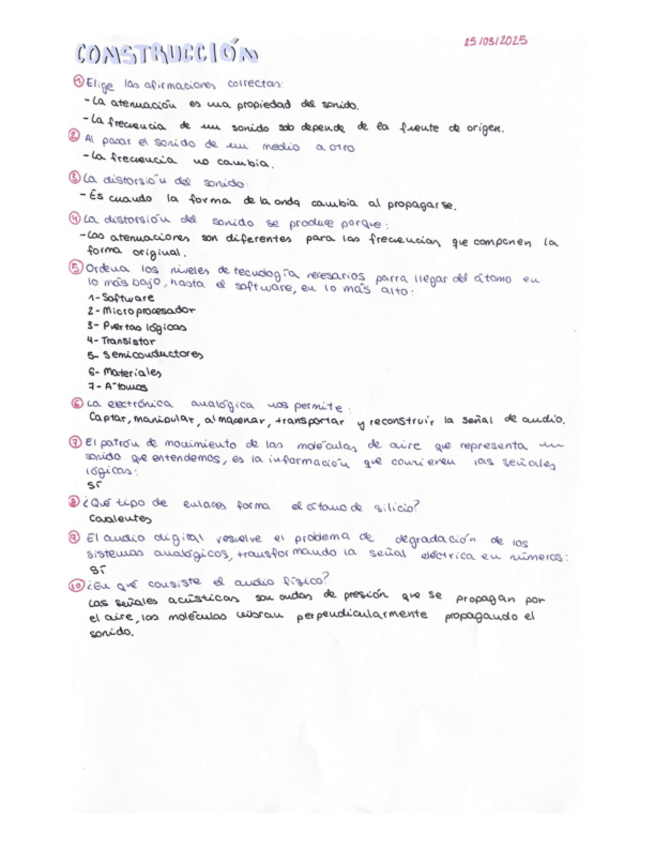 CONSTRUCCIÓN
25/03/2025
① Elige las afirmaciones correctas:
- La atenuación es una propiedad del sonido.
- La frecuencia de un sonido solo depende de la fuente de origen.
② Al pasar el sonido de un medio a otro
- La frecuencia no cambia.
③ La distorsión del sonido:
- Es cuando la forma de la onda cambia al propagarse.
④ La distorsión del sonido se produce porque:
- Las atenuaciones son diferentes para las frecuencias que componen la
forma original.
⑤ Ordena los niveles de tecnología necesarios para llegar del átomo en
lo más bajo, hasta el software, en lo más alto:
1- Software
2- Microprocesador
3- Puertas lógicas
4- Transistor
5- Semiconductores
6- Materiales
7- Átomos
⑥ La electrónica analógica nos permite:
Captar, manipular, almacenar, transportar y reconstruir la señal de audio.
⑦ El patrón de movimiento de las moléculas de aire que representa un
sonido que entendemos, es la información que contienen las señales
lógicas:
SÍ
⑧ ¿Qué tipo de enlaces forma el átomo de silicio?
Covalentes
⑨ El audio digital resuelve el problema de degradación de los
sistemas analógicos, transformando la señal eléctrica en números:
SÍ
⑩ ¿En qué consiste el audio físico?
Las señales acústicas son ondas de presión que se propagan por
el aire, las moléculas vibran perpendicularmente propagando el
sonido.